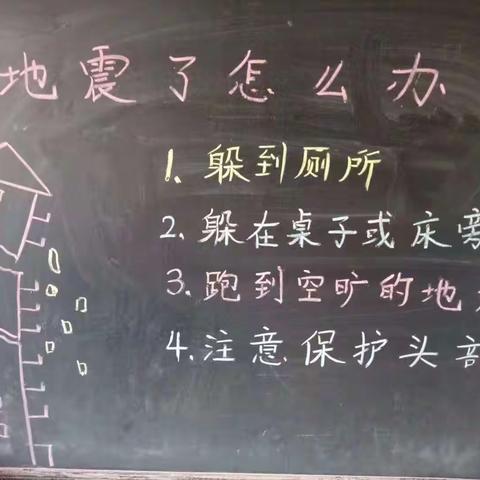 地震了怎么办
1. 躲到厕所
2. 躲在桌子或床旁
3. 跑到空旷的地
4. 注意保护头部